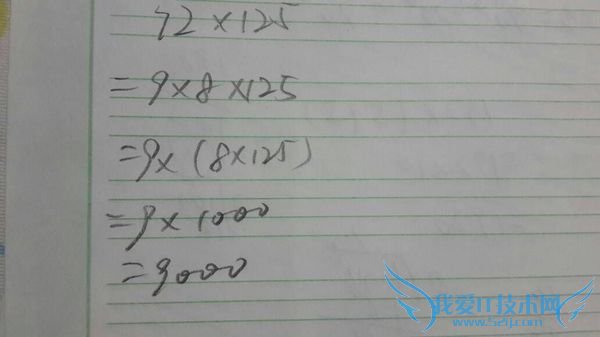 72×125
=9×8×125
=9×(8×125)
=9×1000
=9000
我爱IT技术网
www.52ij.com